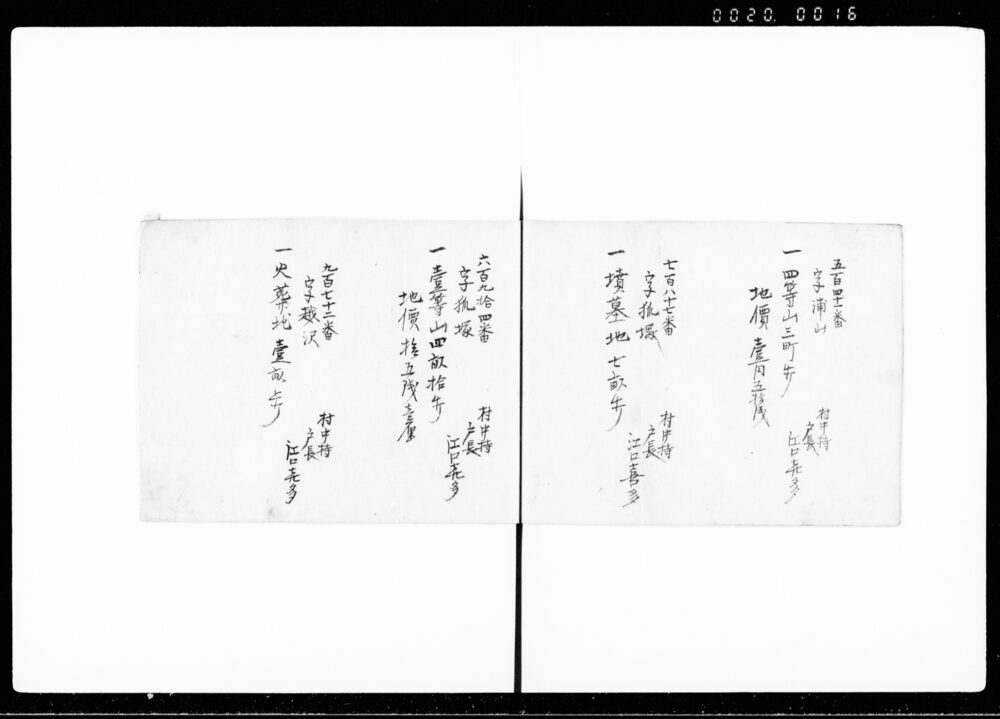 0020. 0016
五百四十一番
字浦山
一 四等山三町歩
地價 壹円五拾銭
村中持
戸長
江口喜多
七百八十七番
字狐塚
一 墳墓地 七畝歩
村中持
戸長
江口喜多
六百九拾四番
字狐塚
一 壹等山四畝拾歩
地價 拾五銭壹厘
村中持
戸長
江口喜多
九百七十三番
字越沢
一 火葬地 壹畝歩
村中持
戸長
江口喜多